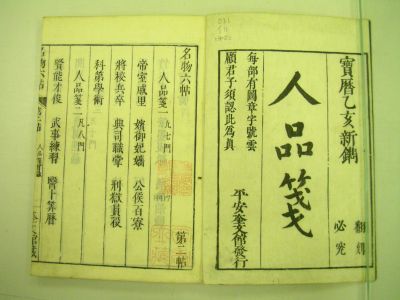 寶暦乙亥新鐫
翻刻
必究
人品箋
每部有圖章字號雲
顧君子須認此為真
平安奎文館發行
名物六帖
第二帖
人品箋一 九七門
帝室戚里 嬪御妃嬙 公侯百寮
將校兵卒 典司職掌 刑獄員役
科第學術
人品箋二 凡八門
賢能才俊 武事練習 醫卜算曆
名物六帖